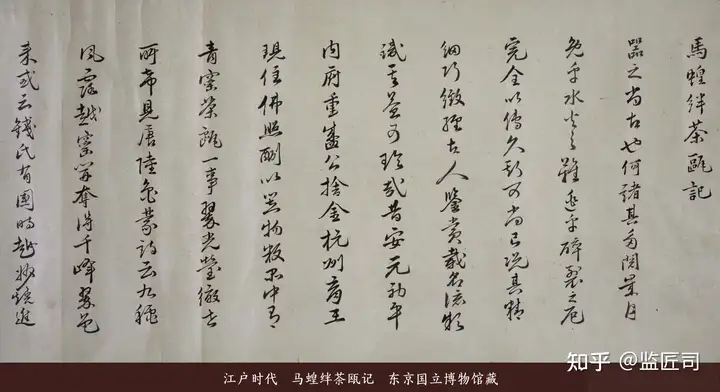 馬蝗絆茶甌記
器之尚古也何諸其多閲歲月
免乎水火之難逃乎碎裂之厄
完全以傳久斯可尚已況其精
細巧緻經古人鑒賞載名流
識者益可珍哉昔安元初平
内府重盛公捨金杭州育王
現住佛照酬以器物數品中有
青窯茶甌一事翠光瑩徹世
所希見唐陸龜蒙詩云九穐
風露越窯開奪得千峰翠色
來或云錢氏有國時越州燒進
江户时代 马蝗绊茶瓯记 东京国立博物馆藏
知乎 @监匠司